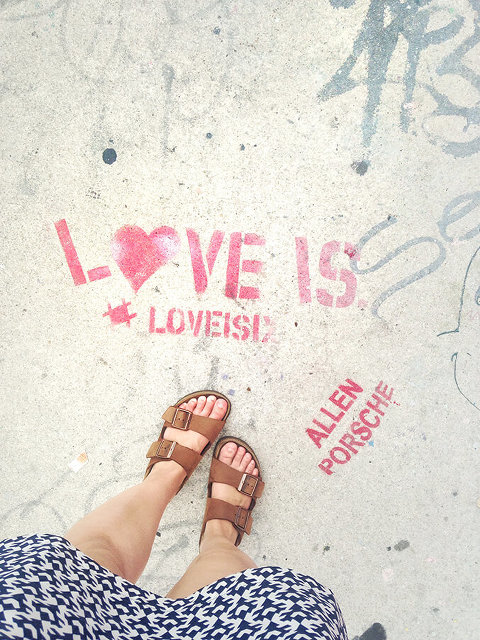 L♥VE IS
#LOVEISD
ALLEN
PORSCHE